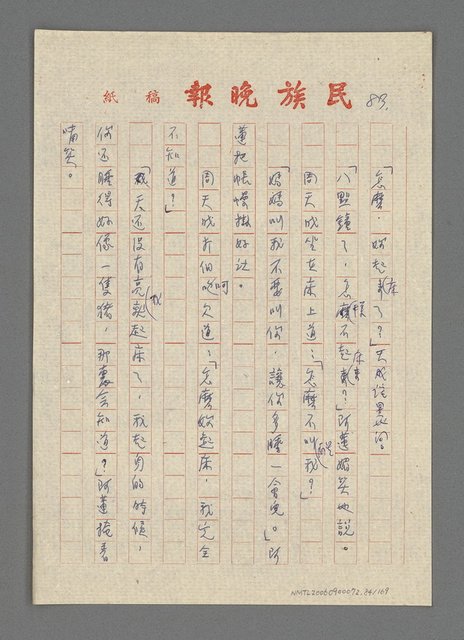 民族晚報 稿紙
83.
「怎麼，妳起床了？」天成詫異的問。
「八點鐘了，怎麼還不起床？」阿蓮媚笑地說。
周天成坐在床上道：「怎麼不叫醒我？」
「媽媽叫我不要叫你，讓你多睡一會兒。」阿
蓮把帳幔掛好說。
周天成打個呵欠道：「怎麼妳起床，我完全
不知道？」
「天還沒有亮我就起床了，我起身的時候，
你還睡得好像一隻豬，那裏會知道？」阿蓮掩着
嘴笑。
NMTL20060900072.84/169